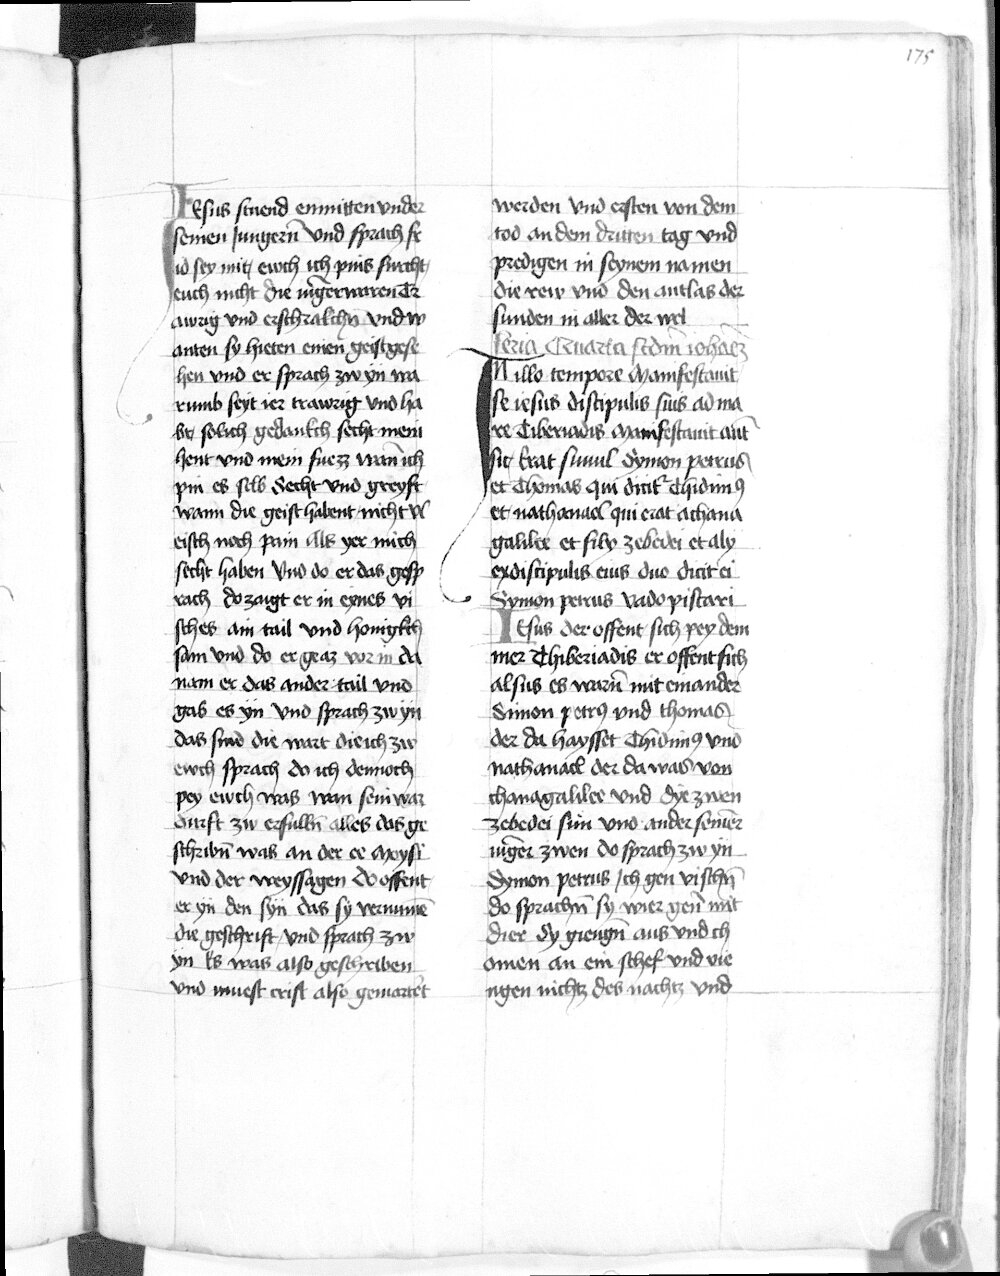 175
Iesus stuend enmitten vnder
seinen Jungern̄ vnd sprach fr
id sey mit ewch ich pins furcht
euch nicht die iuḡer waren Tr
awrig vnd erschrakchn̄ vnd w
anten sy hieten einen geist gese
hen vnd er sprach zw yn wa
rumb seyt ier trawrig vnd ha
bt solich gedankch secht mein
hent vnd mein fuezz wan̄ ich
pin es selb Secht vnd greyft
wann die geist habent nicht vl
eisch noch pain Als yer mich
secht haben Vnd do er das gesp
rach do zaigt er in eynes vi
sches ain tail vnd honigkch
sam vnd do er geaz vor in da
nam er das ander tail vnd
gab es yn vnd sprach zw yn
das sind die wart die ich zw
ewch sprach do ich dennoch
pey ewch was wan sein war
durft zw erfulln̄ alles das ge
schribn̄ was an der ee Moysi
vnd der weyssagen Do offent
er yn den syn das sy vernumē
die geschrift vnd sprach zw
yn Es was also geschriben
vnd muest crist also gemartert
werden vnd ersten von dem
tod an dem dritten tag vnd
predigen in seynem namen
die rew vnd den antlas der
sunden in aller der wel
feria Quarta scdm̄ iohaēz
In illo tempore Manifestauit
se iesus discipulis suis ad ma
re Tiberiadis Manifestauit aut̄
sic Erat simul Symon petrus
et Thomas qui dicit̄ Thidimꝰ
et nathanael qui erat a chana
galilee et filij zebedei et alij
ex discipulis eius duo dicit ei
Symon petrus Vado piscari
Iesus der offent sich pey dem
mer Thiberiadis er offent sich
alsus es warn̄ mit einander
Simon petrꝰ vnd thomas
der da haysset Thidimꝰ vnd
nathanael der da was von
chanagalilee vnd dye zwen
zebedei sun vnd ander seiner
iuḡer zwen do sprach zw yn
Symon petrus Ich gen vischn̄
do sprachn̄ sy wier gen̄ mit
dier Sy giengn̄ aus vnd ch
omen an ein schef vnd vie
ngen nichtz des nachtz vnd